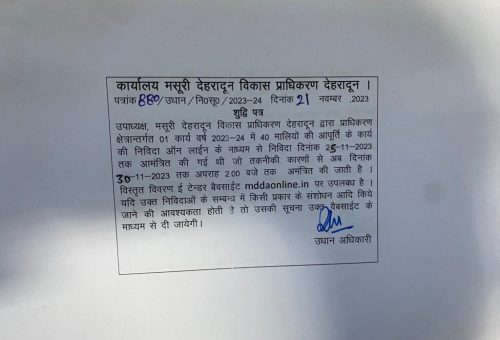 कार्यालय मसूरी देहरादून विकास प्राधिकरण देहरादून ।
पत्रांक 880/उधान/नि0सू0/2023-24 दिनांक 21 नवम्बर ,2023
शुद्धि पत्र
उपाध्यक्ष, मसूरी देहरादून विकास प्राधिकरण देहरादून द्वारा प्राधिकरण
क्षेत्रान्तर्गत 01 कार्य वर्ष 2023-24 में 40 मालियों की आपूर्ति के कार्य
की निविदा ऑन लाईन के माध्यम से निविदा दिनांक 25-11-2023
तक आमंत्रित की गई थी जो तकनीकी कारणों से अब दिनांक
30-11-2023 तक अपराह 2.00 बजे तक आमंत्रित की जाती है ।
विस्तृत विवरण ई टेन्डर बैवसाईट mddaonline.in पर उपलब्ध है ।
यदि उक्त निविदाओं के सम्बन्ध में किसी प्रकार के संशोधन आदि किये
जाने की आवश्यकता होती है तो उसकी सूचना उक्त वेबसाईट के
माध्यम से दी जायेगी।
उधान अधिकारी